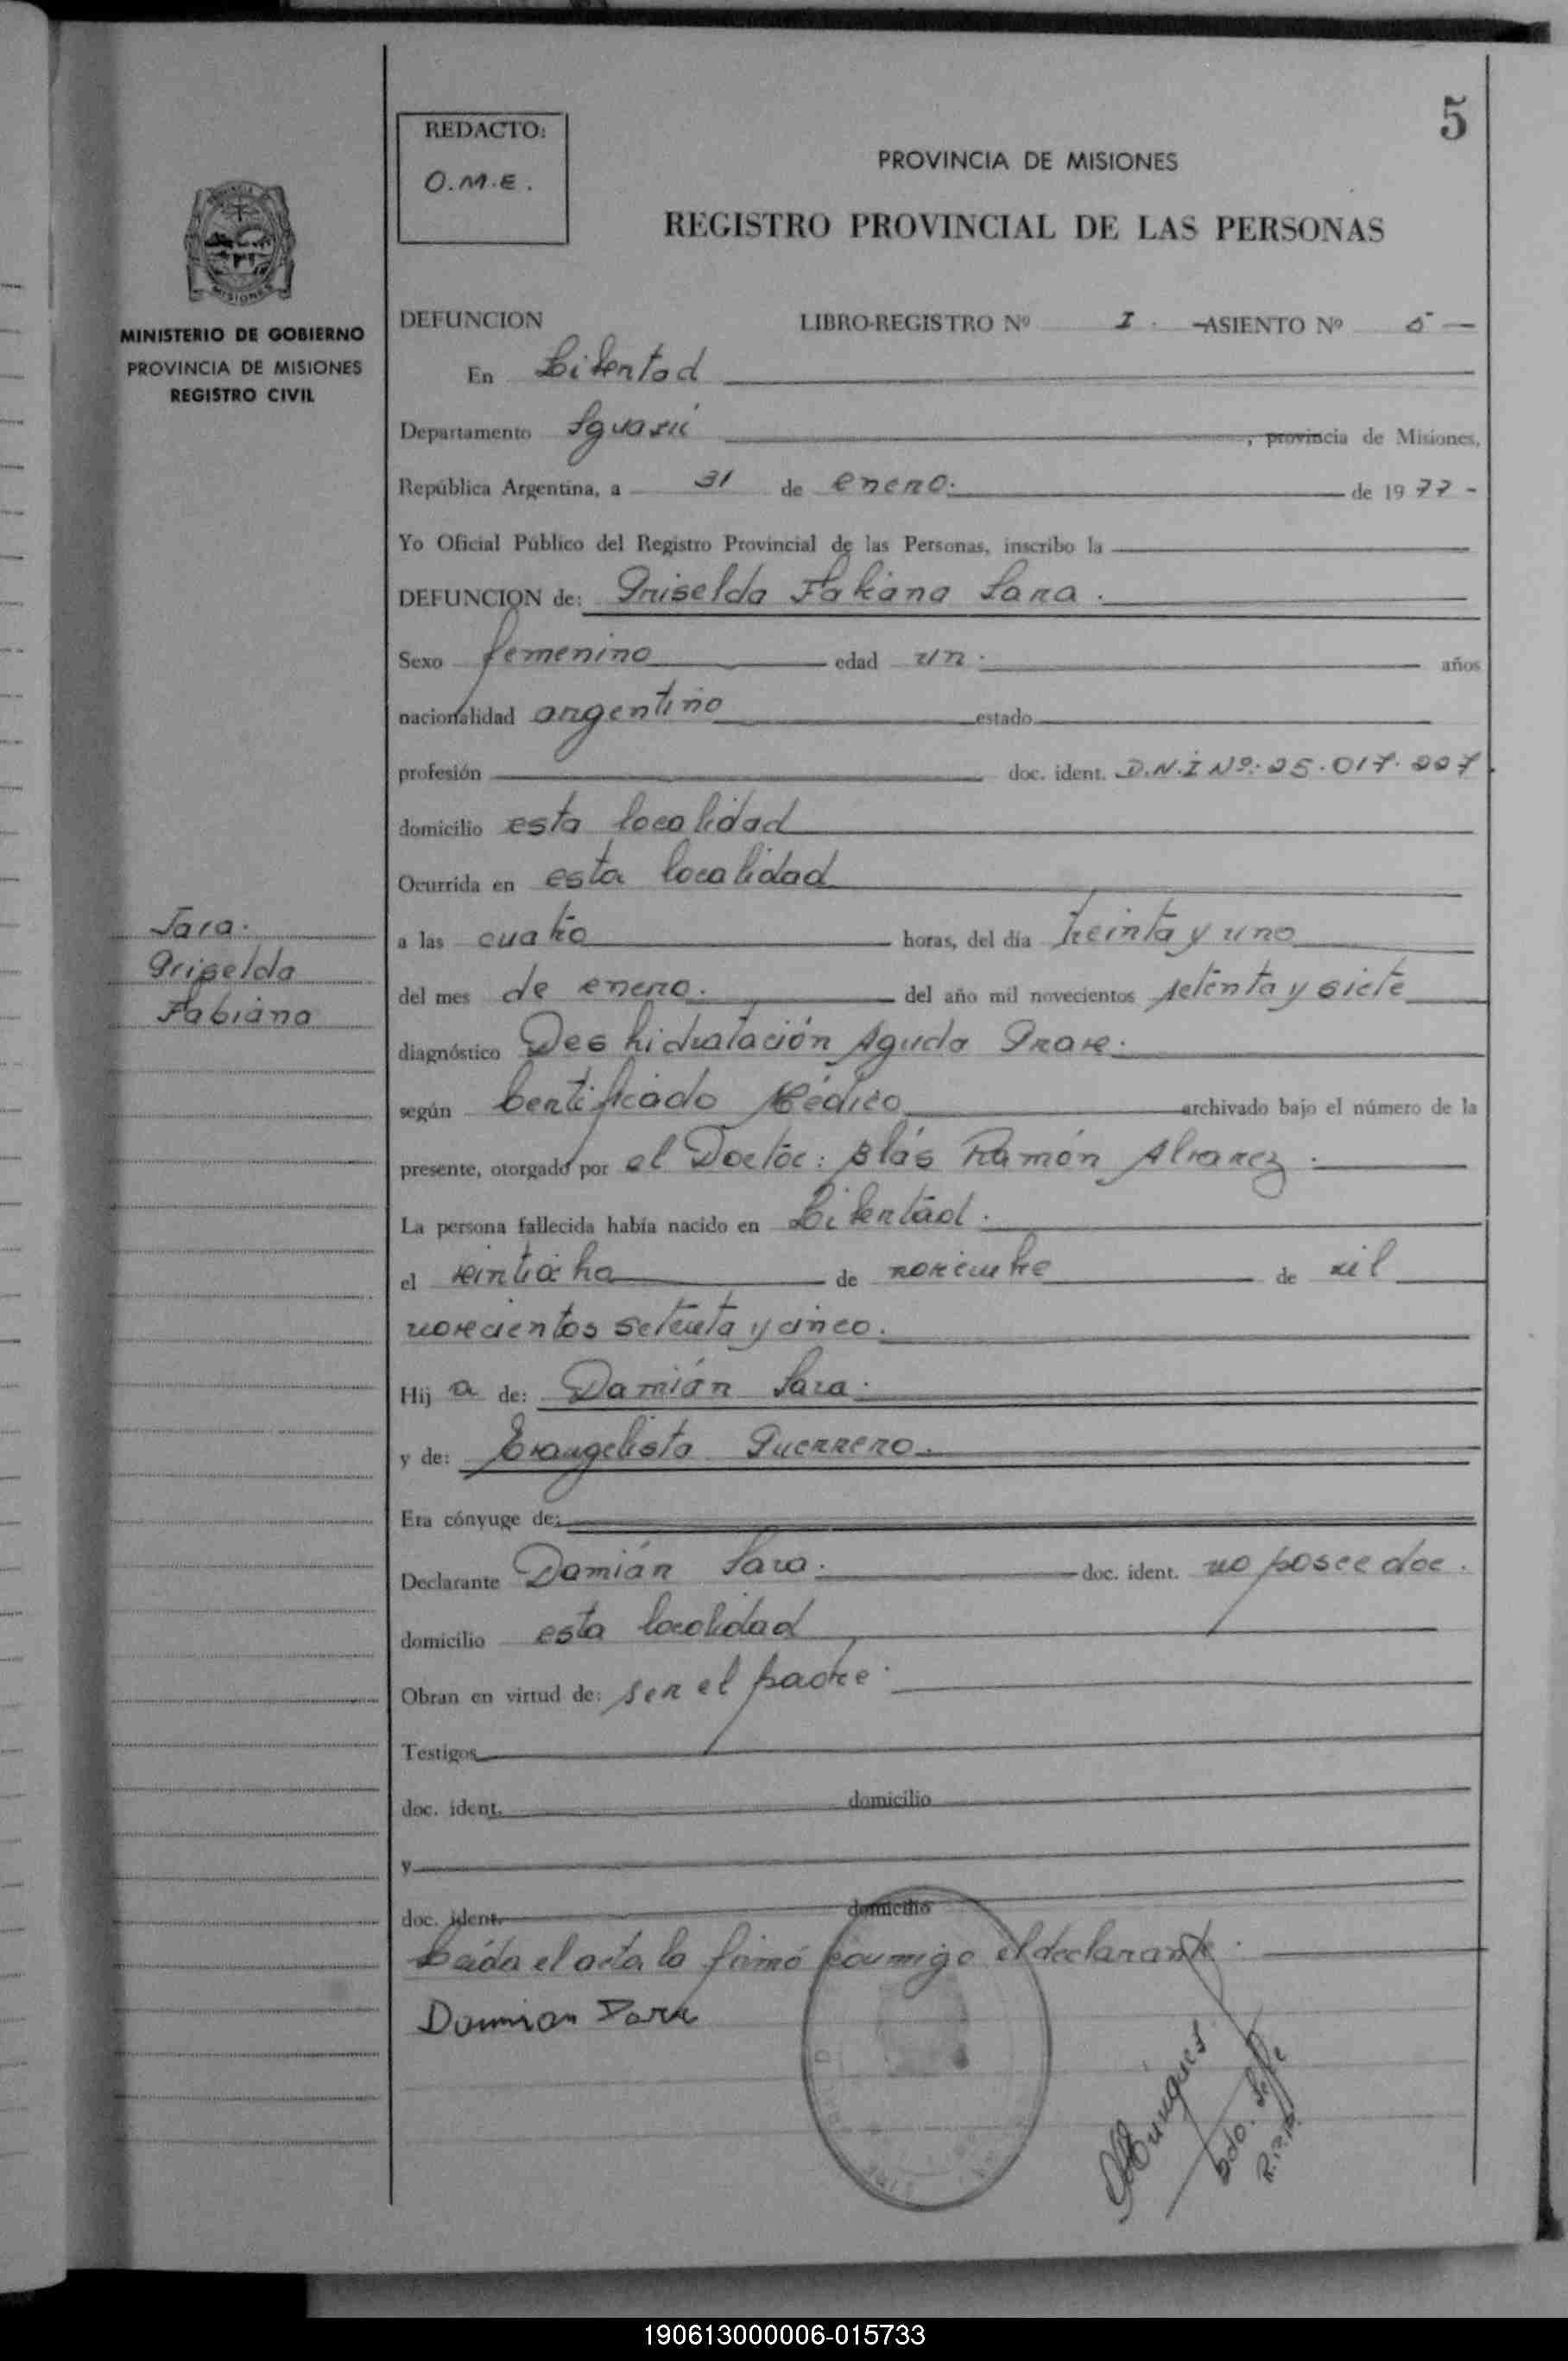 5
REDACTO:
O.M.E.
PROVINCIA DE MISIONES
REGISTRO PROVINCIAL DE LAS PERSONAS
MISIONES
MINISTERIO DE GOBIERNO
PROVINCIA DE MISIONES
REGISTRO CIVIL
DEFUNCION LIBRO-REGISTRO Nº I. ASIENTO Nº 5
En Libertad
Departamento Iguazú, provincia de Misiones,
República Argentina, a 31 de enero. de 1977
Yo Oficial Público del Registro Provincial de las Personas, inscribo la
DEFUNCION de: Griselda Fabiana Jara.
Sexo femenino edad un. años
nacionalidad argentino estado
profesión doc. ident. D.N.I Nº: 25.017.227
domicilio esta localidad
Ocurrida en esta localidad
a las cuatro horas, del día treinta y uno
del mes de enero. del año mil novecientos setenta y siete
diagnóstico Deshidratación Aguda Grave.
según Certificado Médico archivado bajo el número de la
presente, otorgado por el Doctor: Blás Ramón Alvarez.
La persona fallecida había nacido en Libertad.
el veintiocho de noviembre de mil
novecientos setenta y cinco.
Hij a de: Damián Jara.
y de: Evangelista Guerrero.
Era cónyuge de:
Declarante Damián Jara. doc. ident. no posee doc.
domicilio esta localidad
Obran en virtud de: ser el padre.
Testigos
doc. ident. domicilio
y
doc. ident. domicilio
Leída el acta la firmó conmigo el declarante.
Jara.
Griselda
Fabiana
190613000006-015733